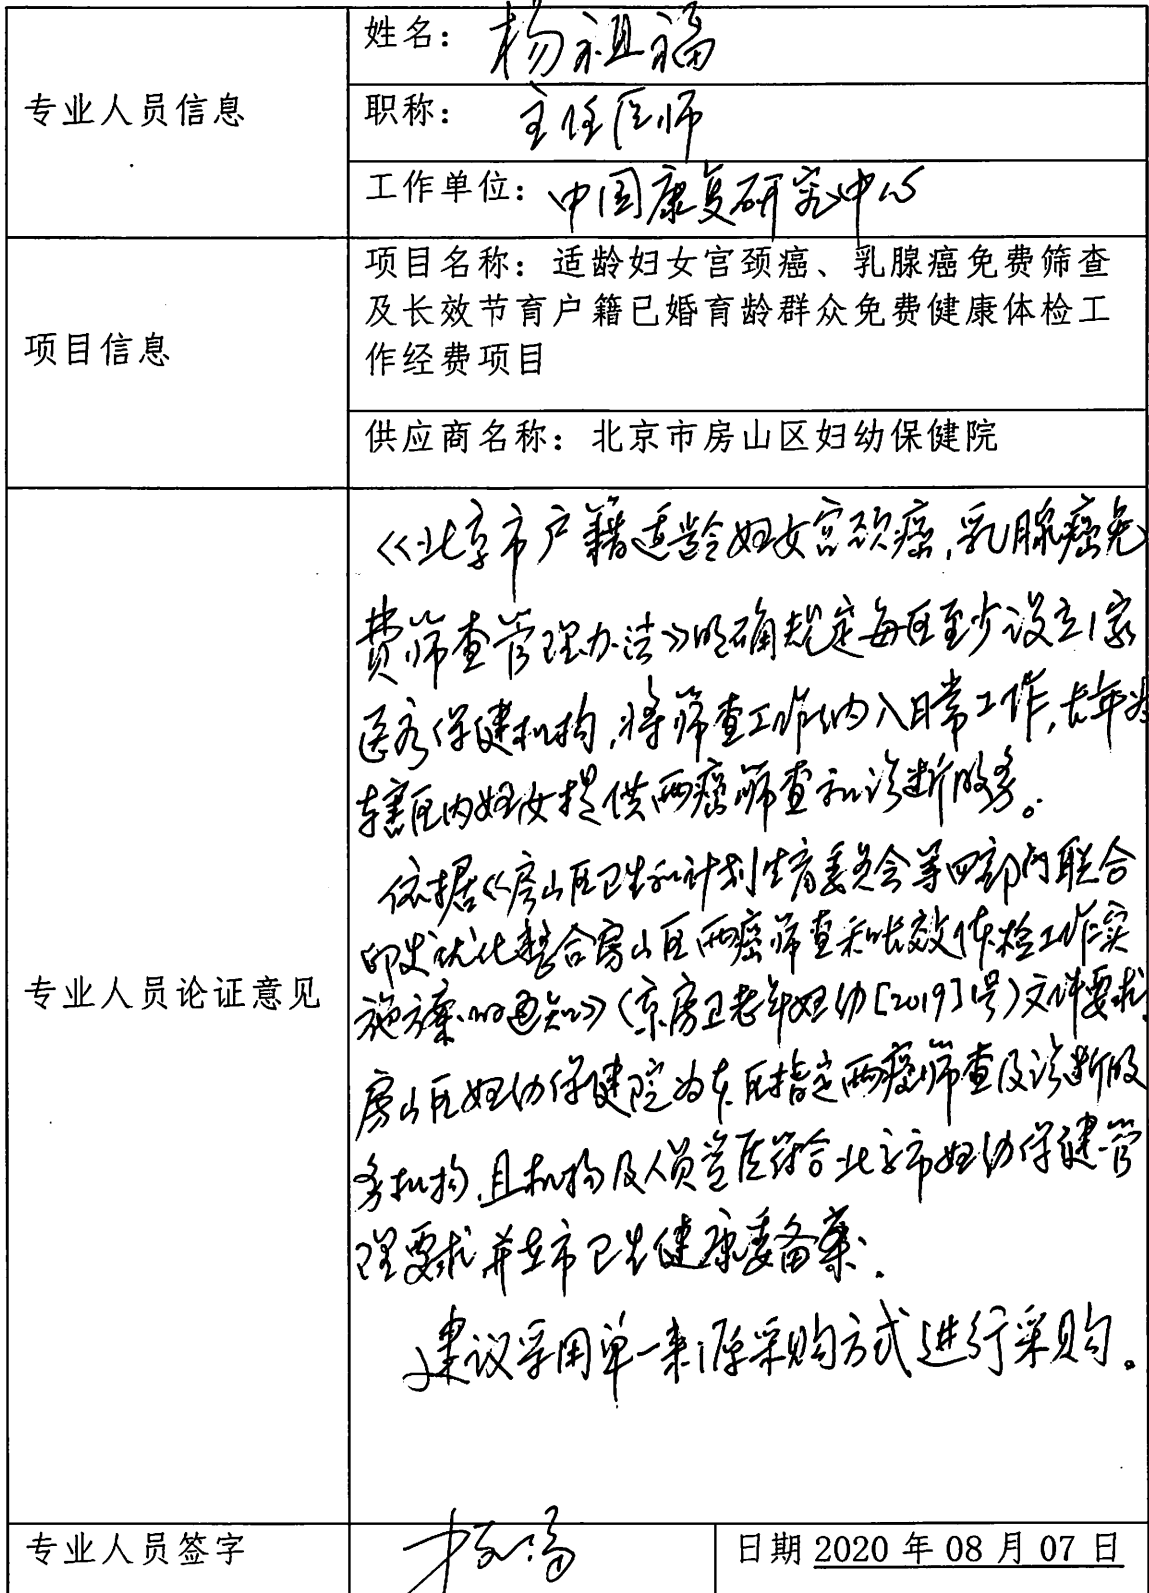 专业人员信息
姓名：杨祖福
职称：主任医师
工作单位：中国康复研究中心
项目信息
项目名称：适龄妇女宫颈癌、乳腺癌免费筛查
及长效节育户籍已婚育龄群众免费健康体检工
作经费项目
供应商名称：北京市房山区妇幼保健院
专业人员论证意见
《北京市户籍适龄妇女宫颈癌,乳腺癌免
费筛查管理办法》明确规定每区至少设立1家
医疗保健机构,将筛查工作纳入日常工作,长年为
辖区内妇女提供两癌筛查和诊断服务。
依据《房山区卫生和计划生育委员会等四部门联合
印发优化整合房山区两癌筛查和长效体检工作实
施方案的通知》(京房卫老年妇幼[2019]1号)文件要求,
房山区妇幼保健院为本区指定两癌筛查及诊断服
务机构,且机构及人员资质符合北京市妇幼保健管
理要求并在市卫生健康委备案.
建议采用单一来源采购方式进行采购。
专业人员签字
日期 2020 年 08 月 07 日